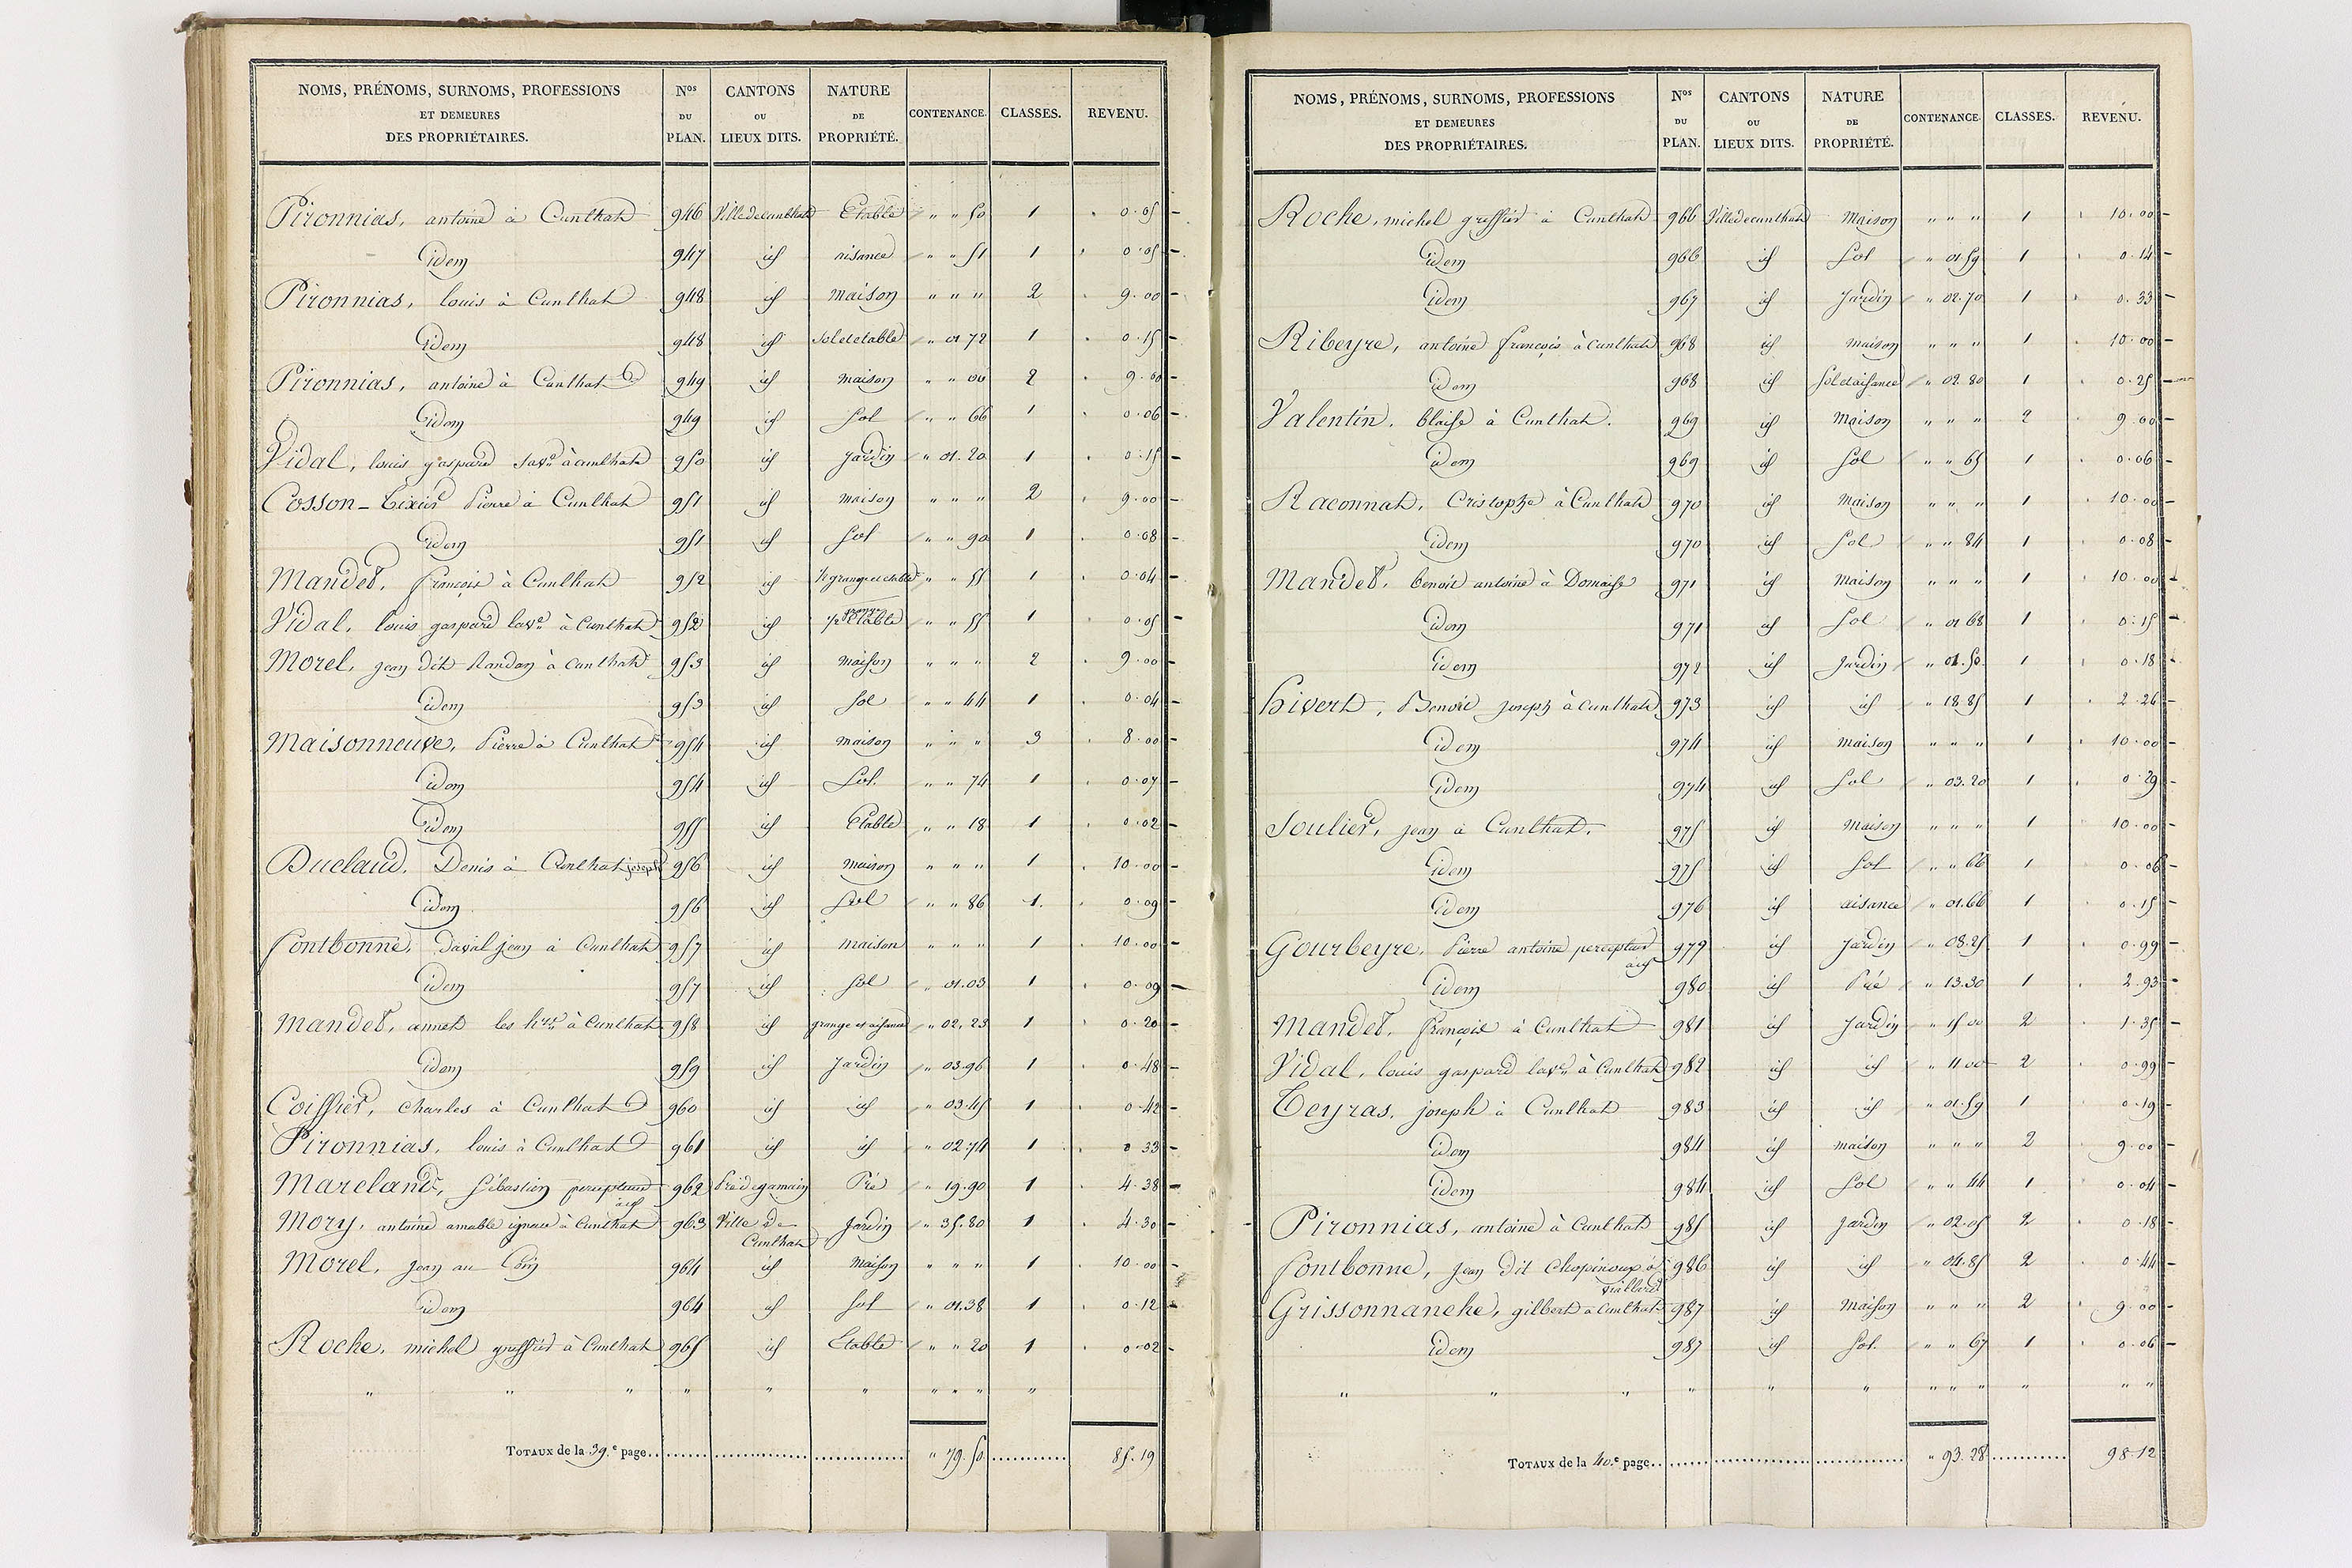 NOMS, PRÉNOMS, SURNOMS, PROFESSIONS ET DEMEURES DES PROPRIÉTAIRES. Nos DU PLAN. CANTONS OU LIEUX DITS. NATURE DE PROPRIÉTÉ. CONTENANCE. CLASSES. REVENU.
Pironnias, antoine à Cunlhat 946 Ville de cunlhat Etable " " 50 1 0.05
idem 947 id aisance " " 51 1 0.05
Pironnias, louis à Cunlhat 948 id maison " " " 2 9.00
idem 948 id sol et etable " 01 72 1 0.15
Pironnias, antoine à Cunlhat 949 id maison " " 00 2 9.00
idem 949 id sol " " 66 1 0.06
Vidal, louis gaspard à cunlhat 950 id jardin " 01.20 1 0.15
Cosson-Tixier Pierre à Cunlhat 951 id maison " " " 2 9.00
idem 951 id sol " " 90 1 0.08
Mandet, françois à Cunlhat 952 id 1/2 grange et etable " " 55 1 0.04
Vidal, louis gaspard lave à Cunlhat 952 id 1/2 grange Etable " " 55 1 0.05
Morel, jean dit Randan à cunlhat 953 id maison " " " 2 9.00
idem 953 id sol " " 44 1 0.04
Maisonneuve, Pierre à Cunlhat 954 id maison " " " 3 8.00
idem 954 id Sol. " " 74 1 0.07
idem 955 id Etable " " 18 1 0.02
Duclaud, Denis à Cunlhat joseph 956 id maison " " " 1 10.00
idem 956 id sol " " 86 1. 0.09
fontbonne, daval jean à Cunlhat 957 id maison " " " 1 10.00
idem 957 id sol " 01.03 1 0.09
Mandet, annet les hers à Cunlhat 958 id grange et aisance " 02.23 1 0.20
idem 959 id Jardin " 03.96 1 0.48
Coiffier, charles à Cunlhat 960 id id " 03.45 1 0.42
Pironnias, louis à Cunlhat 961 id id " 02.74 1 0 33
Mareland, Sébastien percepteur aid 962 Pré de gamain Pré " 19.90 1 4.38
Mory, antoine amable ignace à Cunlhat 963 Ville de Cunlhat Jardin " 35.80 1 4.30
Morel, jean au Coin 964 id Maison " " " 1 10.00
idem 964 id sol " 01.38 1 0.12
Roche, michel greffier à Cunlhat 965 id Etable " " 20 1 0.02
" " " " " " " " " "
TOTAUX de la 39.e page " 79.50 85.19
NOMS, PRÉNOMS, SURNOMS, PROFESSIONS ET DEMEURES DES PROPRIÉTAIRES. Nos DU PLAN. CANTONS OU LIEUX DITS. NATURE DE PROPRIÉTÉ. CONTENANCE. CLASSES. REVENU.
Roche, michel greffier à Cunlhat 966 Ville de cunlhat Maison " " " 1 10.00
idem 966 id Sol " 01 59 1 0.14
idem 967 id Jardin " 02.70 1 0.33
Ribeyre, antoine françois à cunlhat 968 id maison " " " 1 10.00
idem 968 id sol et aisance " 02.80 1 0.25
Valentin, blaise à Cunlhat. 969 id Maison " " " 2 9.00
idem 969 id Sol " " 65 1 0.06
Raconnat, Cristophe à Cunlhat 970 id Maison " " " 1 10.00
idem 970 id Sol " " 84 1 0.08
Mandet, benoit antoine à Domaise 971 id Maison " " " 1 10.00
idem 971 id Sol " 01 68 1 0.15
idem 972 id Jardin " 01.50 1 0.18
hivert, Benoit joseph à cunlhat 973 id id " 18.85 1 2.26
idem 974 id maison " " " 1 10.00
idem 974 id Sol " 03.20 1 0.29
Soulier, jean à Cunlhat. 975 id Maison " " " 1 10.00
idem 975 id Sol " " 66 1 0.06
idem 976 id aisance " 01.66 1 0.15
Gourbeyre, Pierre antoine percepteur aid 979 id Jardin " 08.25 1 0.99
idem 980 id Pré " 13.30 1 2.93
Mandet, françois à Cunlhat 981 id Jardin " 15 00 2 1.35
Vidal, louis gaspard lave à Cunlhat 982 id id " 11 00 2 0.99
Teyras, joseph à Cunlhat 983 id id " 01.59 1 0.19
idem 984 id maison " " " 2 9.00
idem 984 id Sol " " 44 1 0.04
Pironnias, antoine à Cunlhat 985 id jardin " 02.05 2 0.18
fontbonne, jean dit Chopinoux à 986 id id " 04.85 2 0.44
Grissonnanche, gilbert à Cunlhat 987 id Maison " " " 2 9.00
idem 987 id Sol. " " 67 1 0.06
" " " " " " " " " " " "
TOTAUX de la 40.e page " 93.28 98.12